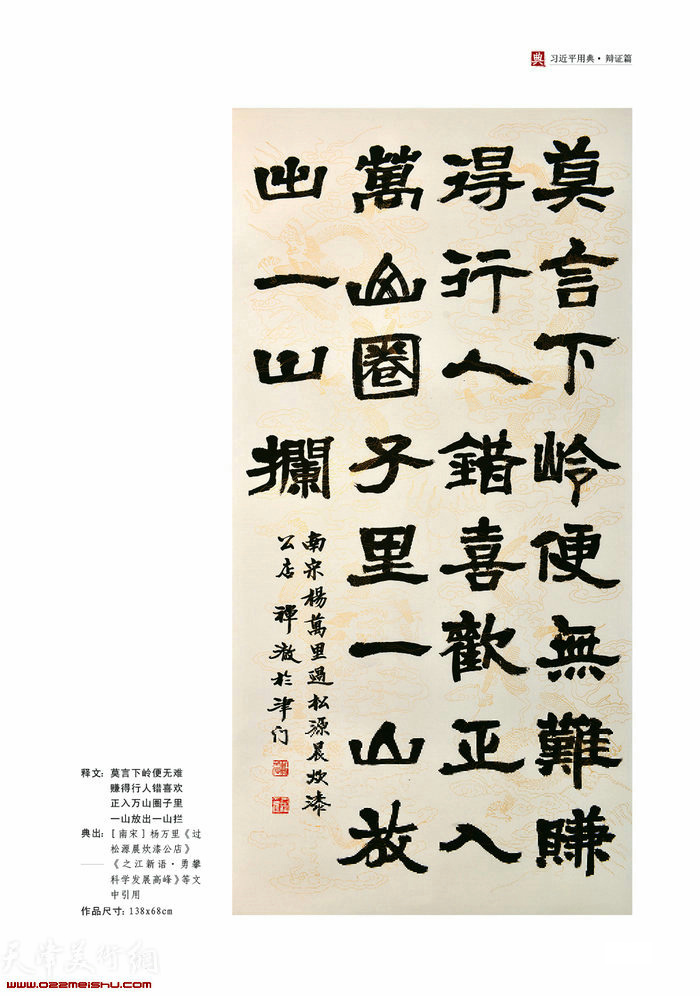 典 习近平用典·辩证篇
莫言下岭便無難賺
得行人錯喜歡正入
萬山圈子里一山放
出一山攔
南宋楊萬里過松源晨炊漆
公店 禪澈於津门
释文：莫言下岭便无难
赚得行人错喜欢
正入万山圈子里
一山放出一山拦
典出：[南宋]杨万里《过
松源晨炊漆公店》
——《之江新语·勇攀
科学发展高峰》等文
中引用
作品尺寸：138x68cm
天津美術網
www.022meishu.com